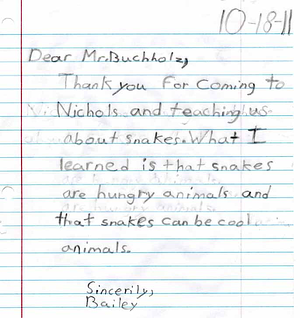 10-18-11
Dear Mr.Buchholz,
Thank you For Coming to
Nichols and teaching us
about snakes. What I
learned is that snakes
are hungry animals and
that snakes can be cool
animals.
Sincerily,
Bailey